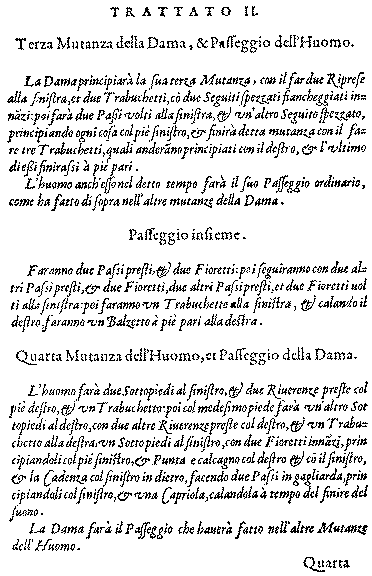 TRATTATO II.
Terza Mutanza della Dama, & Passeggio dell'Huomo.
La Dama principiarà la sua terza Mutanza, con il far due Riprese
alla sinistra, et due Trabuchetti, cō due Seguiti spezzati fiancheggiati in-
nāzi: poi farà due Passi volti alla sinistra, & vn'altro Seguito spezzato,
principiando ogni cosa col piè sinistro, & finirà detta mutanza con il fa-
re tre Trabuchetti, quali anderāno principiati con il destro, & l'vltimo
di essi finirassi à piè pari.
L'huomo anch'esso nel detto tempo farà il suo Passeggio ordinario,
come ha fatto di sopra nell'altre mutanze della Dama.
Passeggio insieme.
Faranno due Passi presti, & due Fioretti: poi seguiranno con due al-
tri Passi presti, & due Fioretti, due altri Passi presti, et due Fioretti vol
ti alla sinistra: poi faranno vn Trabuchetto alla sinistra, & calando il
destro faranno vn Balzetto à piè pari alla destra.
Quarta Mutanza dell'Huomo, et Passeggio della Dama.
L'huomo farà due Sottopiedi al sinistro, & due Riuerenze preste col
piè destro, & vn Trabuchetto: poi col medesimo piede farà vn'altro Sot
topiedi al destro, con due altre Riuerenze preste col destro, & vn Trabu-
chetto alla destra. vn Sottopiedi al sinistro, con due Fioretti innāzi, prin
cipiandoli col piè sinistro, & Punta e calcagno col destro & cō il sinistro,
& la Cadenza col sinistro in dietro, facendo due Passi in gagliarda, prin
cipiandoli col sinistro, & vna Capriola, calandola à tempo del finire del
suono.
La Dama farà il Passeggio che hauerà fatto nell'altre Mutanze
dell'Huomo.
Quarta